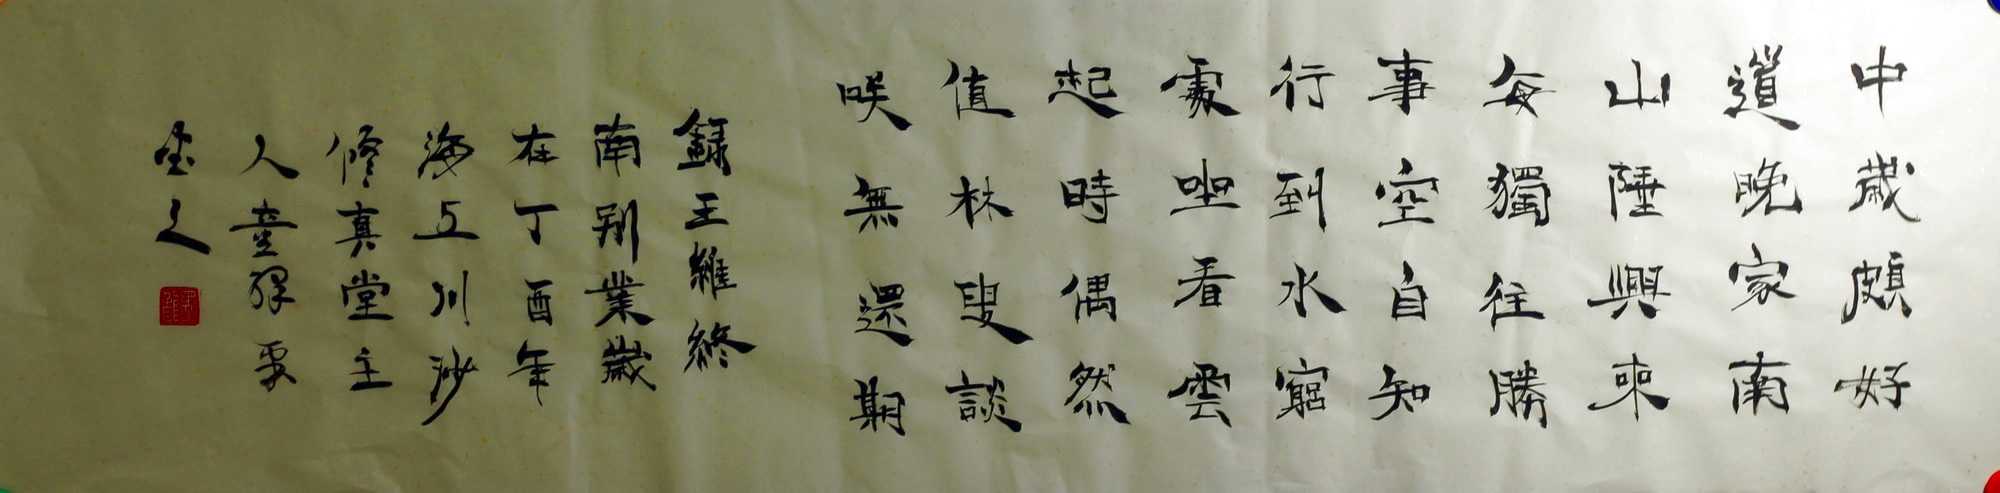 中歲頗好
道晚家南
山陲興來
每獨往勝
事空自知
行到水窮
處坐看雲
起時偶然
值林叟談
咲無還期
錄王維終
南別業歲
在丁酉年
海上川沙
修真堂主
人童